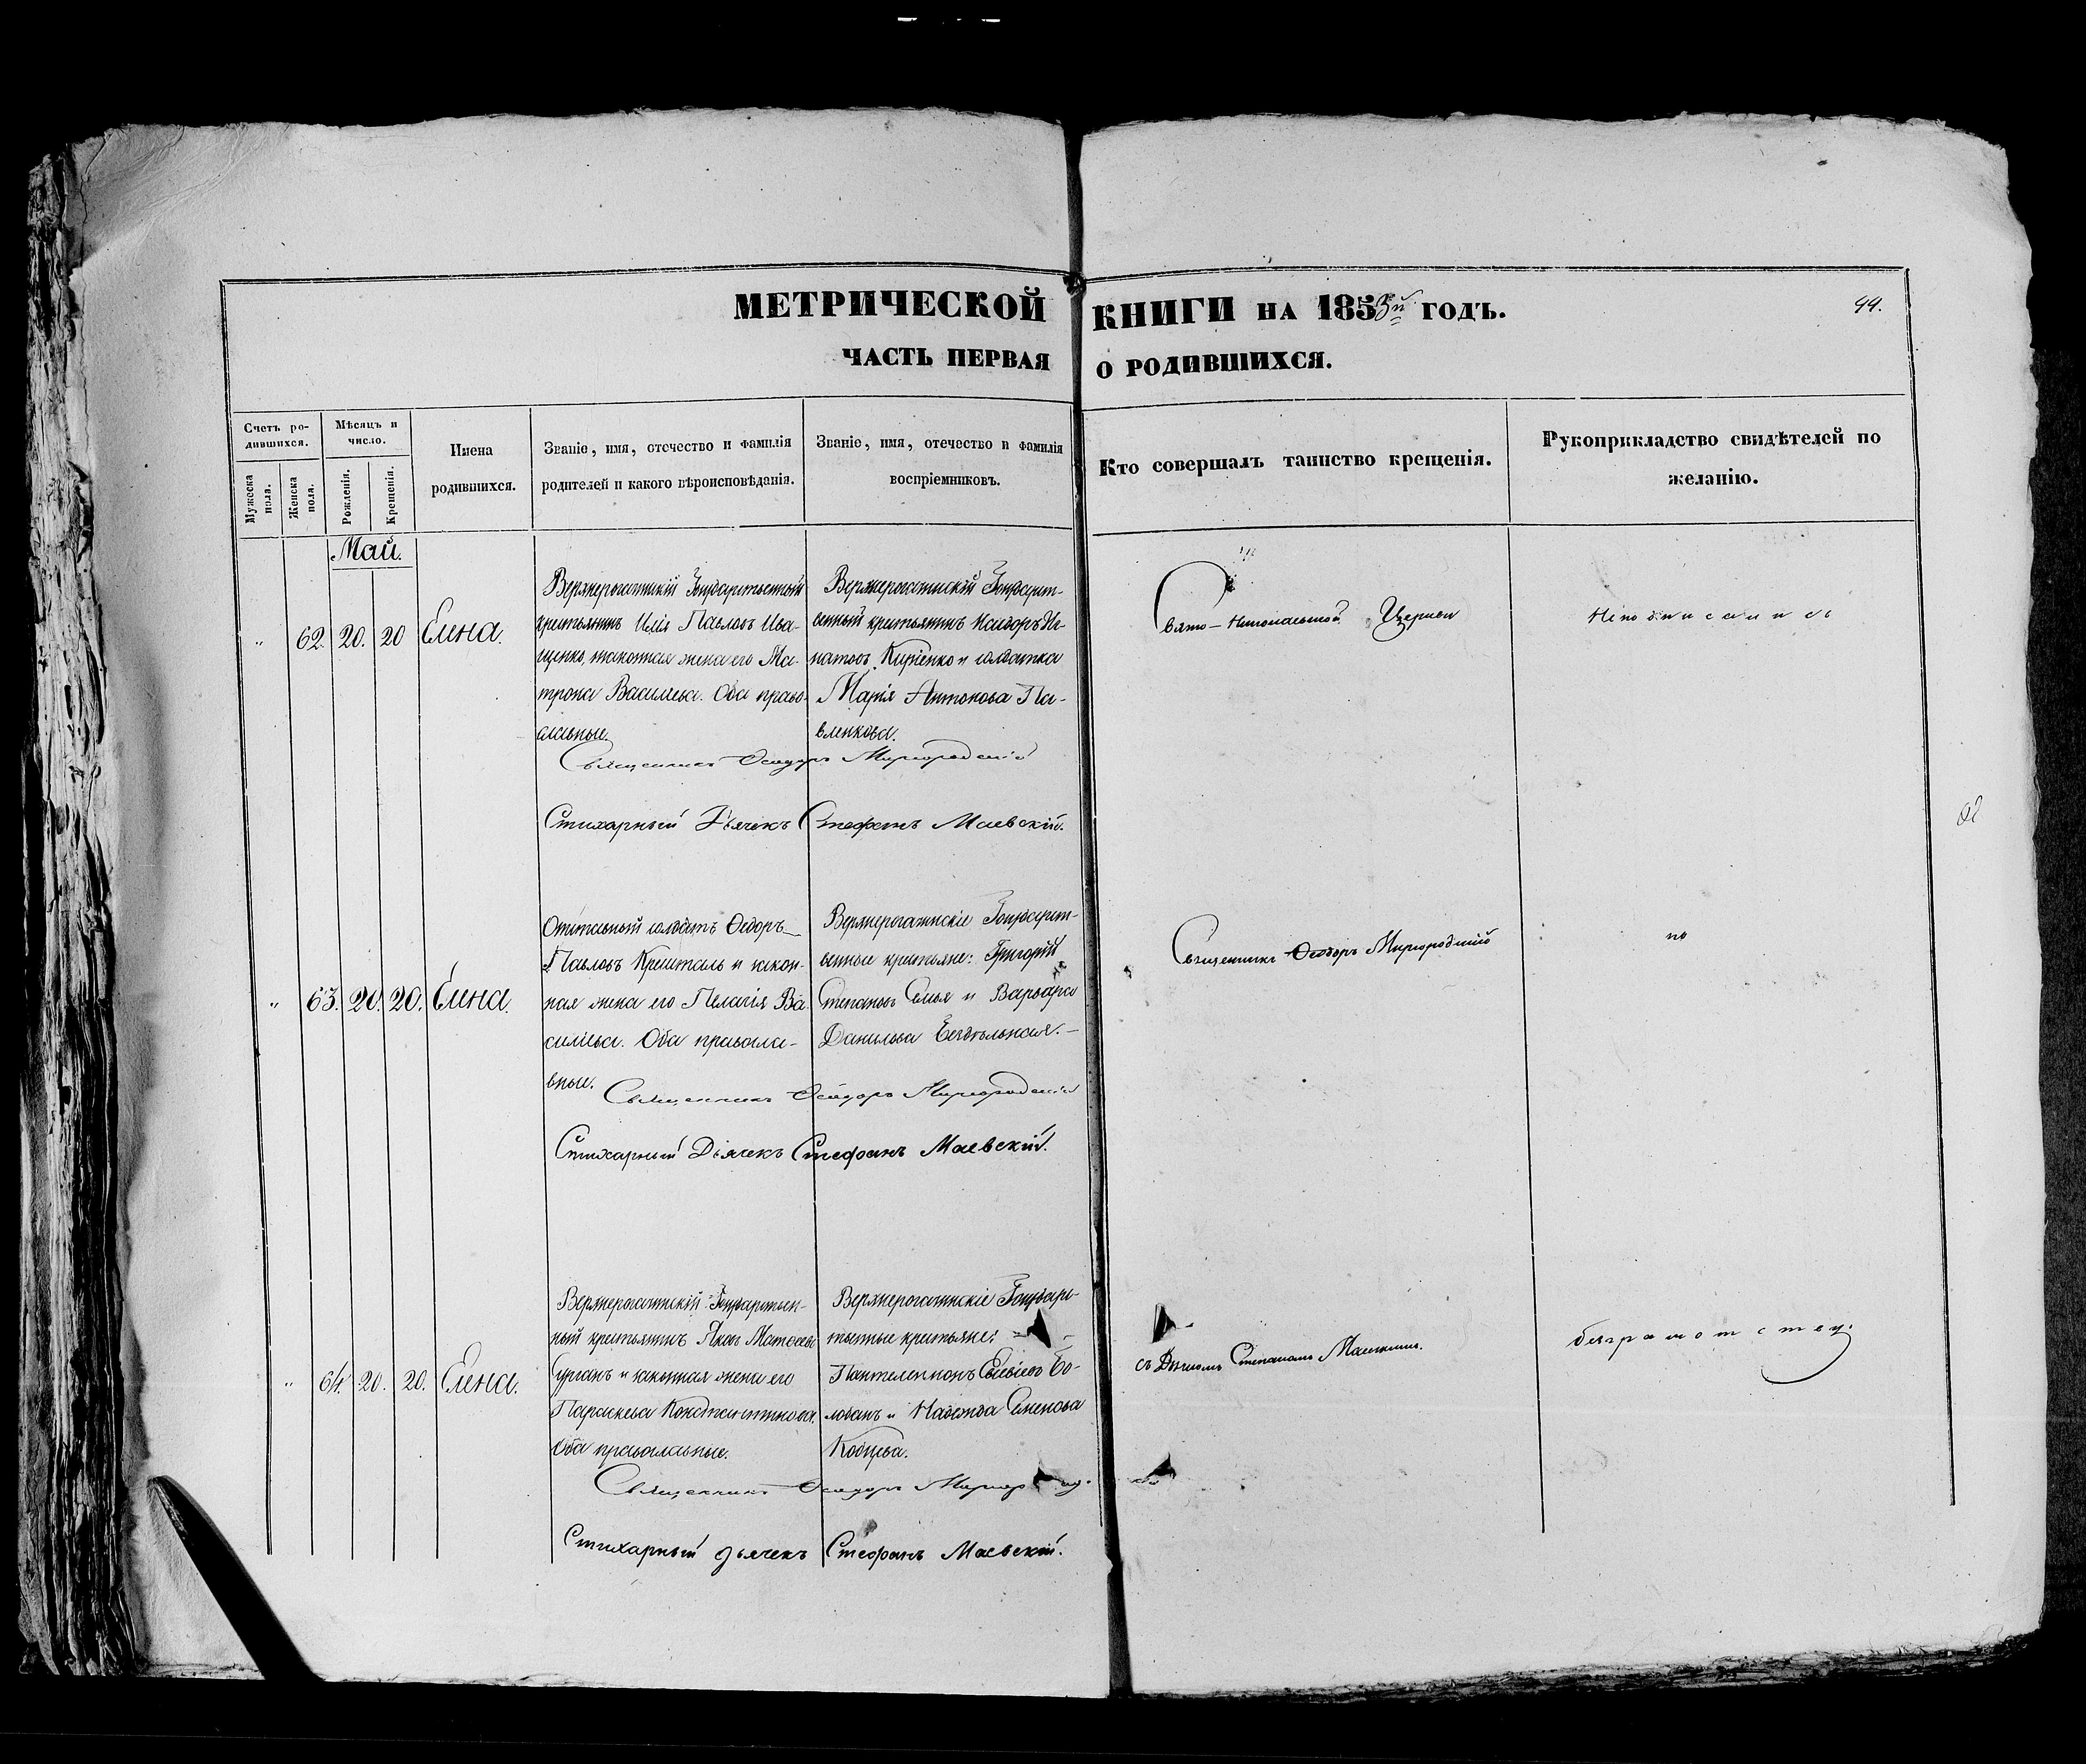 МЕТРИЧЕСКОЙ КНИГИ НА 1853й ГОДЪ.
99.
ЧАСТЬ ПЕРВАЯ О РОДИВШИХСЯ.
Счетъ родившихся.
Мужеска пола.
Женска пола.
Мѣсяцъ и число.
Рожденія.
Крещенія.
Имена родившихся.
Званіе, имя, отечество и фамилія
родителей и какого вѣроисповѣданія.
Званіе, имя, отечество и фамилія
воспріемниковъ.
Кто совершалъ таинство крещенія.
Рукоприкладство свидѣтелей по
желанію.
Май.
" 62. 20. 20 Елена.
Верхнерогачикскій Государственный
крестьянинъ Илія Павловъ Ива-
щенко, законная жена его Ма-
трона Васильева. Оба право-
славные.
Верхнерогачикскій Государст-
венный крестьянинъ Исидоръ Иг-
натовъ Киріенко и солдатка
Марія Антонова Па-
вленкова.
Свято-Николаевской Церкви
Неподписались
Священникъ Ѳеодоръ Миргородскій
Стихарный Дьячекъ Стефанъ Маевскій.
" 63. 20. 20. Елена.
Отставный солдатъ Ѳедоръ
Павловъ Кришталь и закон-
ная жена его Пелагія Ва-
сильева. Оба правосла-
вные.
Верхнерогачикскіе Государст-
венные крестьяне: Григорій
Степановъ Семья и Варвара
Данилова
Священникъ Ѳеодоръ Миргородскій
по
Священникъ Ѳеодоръ Миргородскій
Стихарный Дьячекъ Стефанъ Маевскій.
" 64. 20. 20. Елена.
Верхнерогачикскій Государствен-
ный крестьянинъ Яковъ Матвѣевъ
Курганъ и законная жена его
Параскева Константинова.
Оба православные.
Верхнерогачикскіе Государ-
ственные крестьяне:
Пантелеимонъ Бо-
лобанъ и Надежда Семенова
Кобцева.
съ Дьячкомъ Стефаномъ Маевскимъ.
безграмотству.
Священникъ Ѳеодоръ
Стихарный дьячекъ Стефанъ Маевскій.